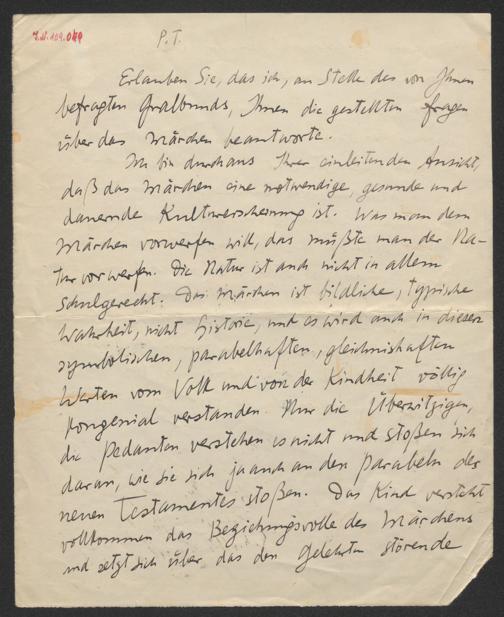 I.N. 109.049
P.T.
Erlauben Sie, das ich, an Stelle des von Ihnen
befragten Gralbunds, Ihnen die gestellten Fragen
über das Märchen beantworte.
Ich bin durchaus Ihrer einleitenden Ansicht,
daß das Märchen eine notwendige, gesunde und
dauernde Kulturerscheinung ist. Was man dem
Märchen vorwerfen will, das müßte man der Na-
tur vorwerfen. Die Natur ist auch nicht in allem
schulgerecht. Das Märchen ist bildliche, typische
Wahrheit, nicht Historie, und es wird auch in diesen
symbolischen, parabelhaften, gleichnishaften
Werten vom Volk und von der Kindheit völlig
kongenial verstanden. Nur die Überwitzigen,
die Pedanten verstehen es nicht und stoßen sich
daran, wie sie sich ja auch an den Parabeln des
neuen Testamentes stoßen. Das Kind versteht
vollkommen das Beziehungsvolle des Märchens
und setzt sich über das den Gelehrten störende